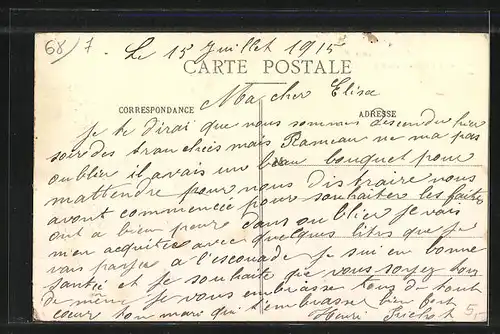 68/7
Le 15 Juillet 1915
CARTE POSTALE
Ma cher Elisa
CORRESPONDANCE
ADRESSE
je te dirai que nous sommes descendu hier
soir des tranchées mais Rameau ne ma pas
oublier il avais un beau bouquet pour
mattendre pour nous distraire nous
avont commencée pour souhaiter les
ont à bien peur dans oublier je vais
m'en acquitée avec quelques que je
vais à l'escouade je sui en bonne
santé et je souhaite que vous soyez tous
de même je vous embrasse tous de tout
coeur ton mari qui t'embrasse bien fort
Henri
5,-